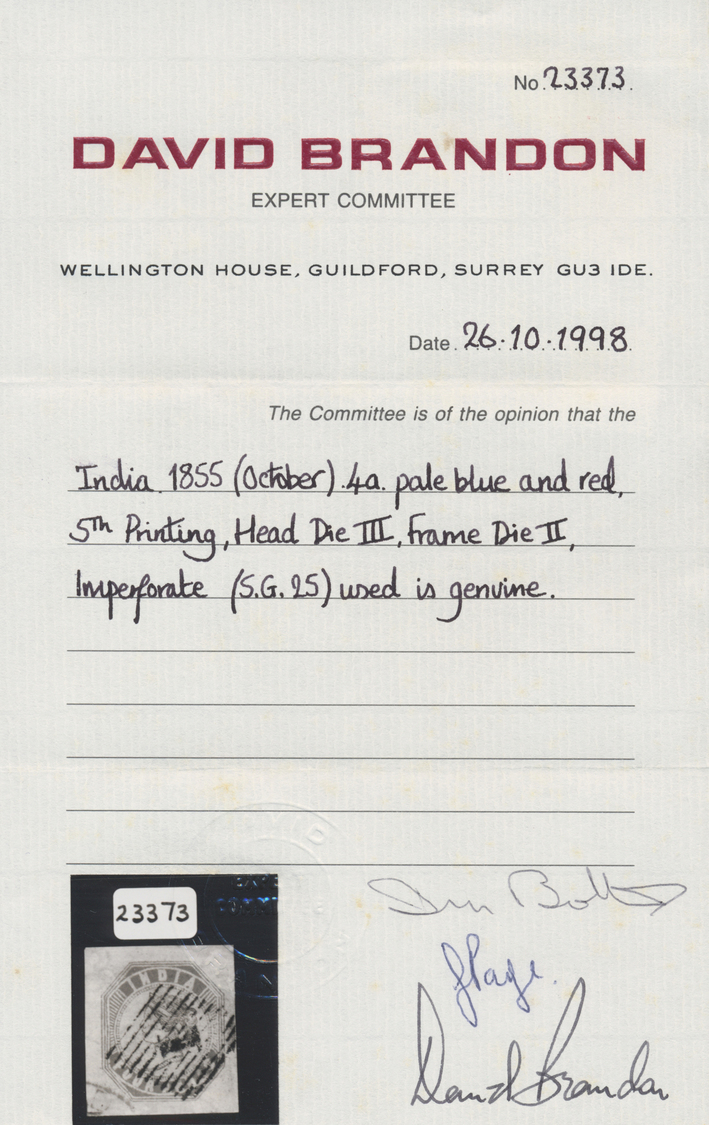 No. 23373.
DAVID BRANDON
EXPERT COMMITTEE
WELLINGTON HOUSE, GUILDFORD, SURREY GU3 1DE.
Date. 26.10.1998.
The Committee is of the opinion that the
India 1855 (October) 4a. pale blue and red,
5th Printing, Head Die III, Frame Die II,
Imperforate (S.G. 25) used is genuine.
23373
INDIA
David Brandon